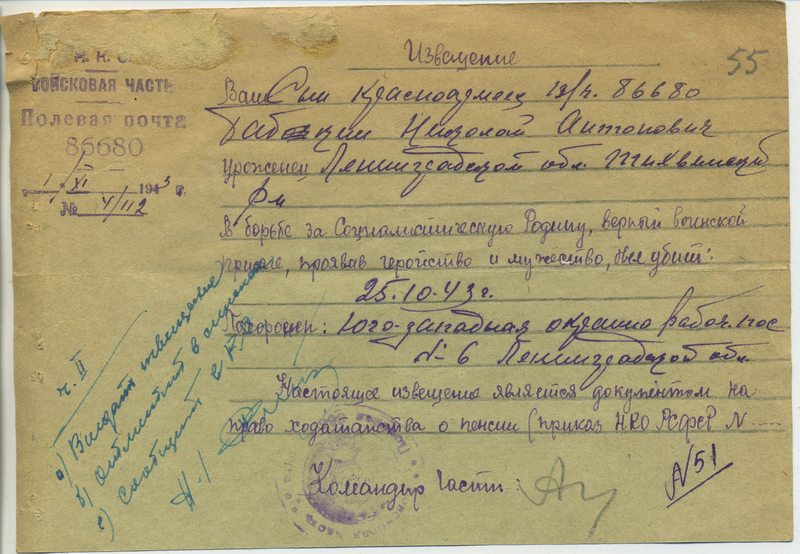 Н. К. О.
ВОЙСКОВАЯ ЧАСТЬ
Полевая почта
86680
1/XI 1943 г.
№ 4/112
Извещение
55
Ваш Сын Красноармеец в/ч. 86680
Николай Антонович
уроженец Ленинградской обл. Тихвинский
р-н
В борьбе за Социалистическую Родину, верный воинской
присяге, проявав геройство и мужество, был убит:
25.10.43 г.
Похоронен: Юго-западная окраина рабоч. пос
N-6 Ленинградской обл
Настоящее извещение является документом на
право ходатайства о пенсии (приказ НКО РСФСР N
Командир части:
N 51
ч. II
а) Выдать извещение
в) Отметить в
с) Сообщить в